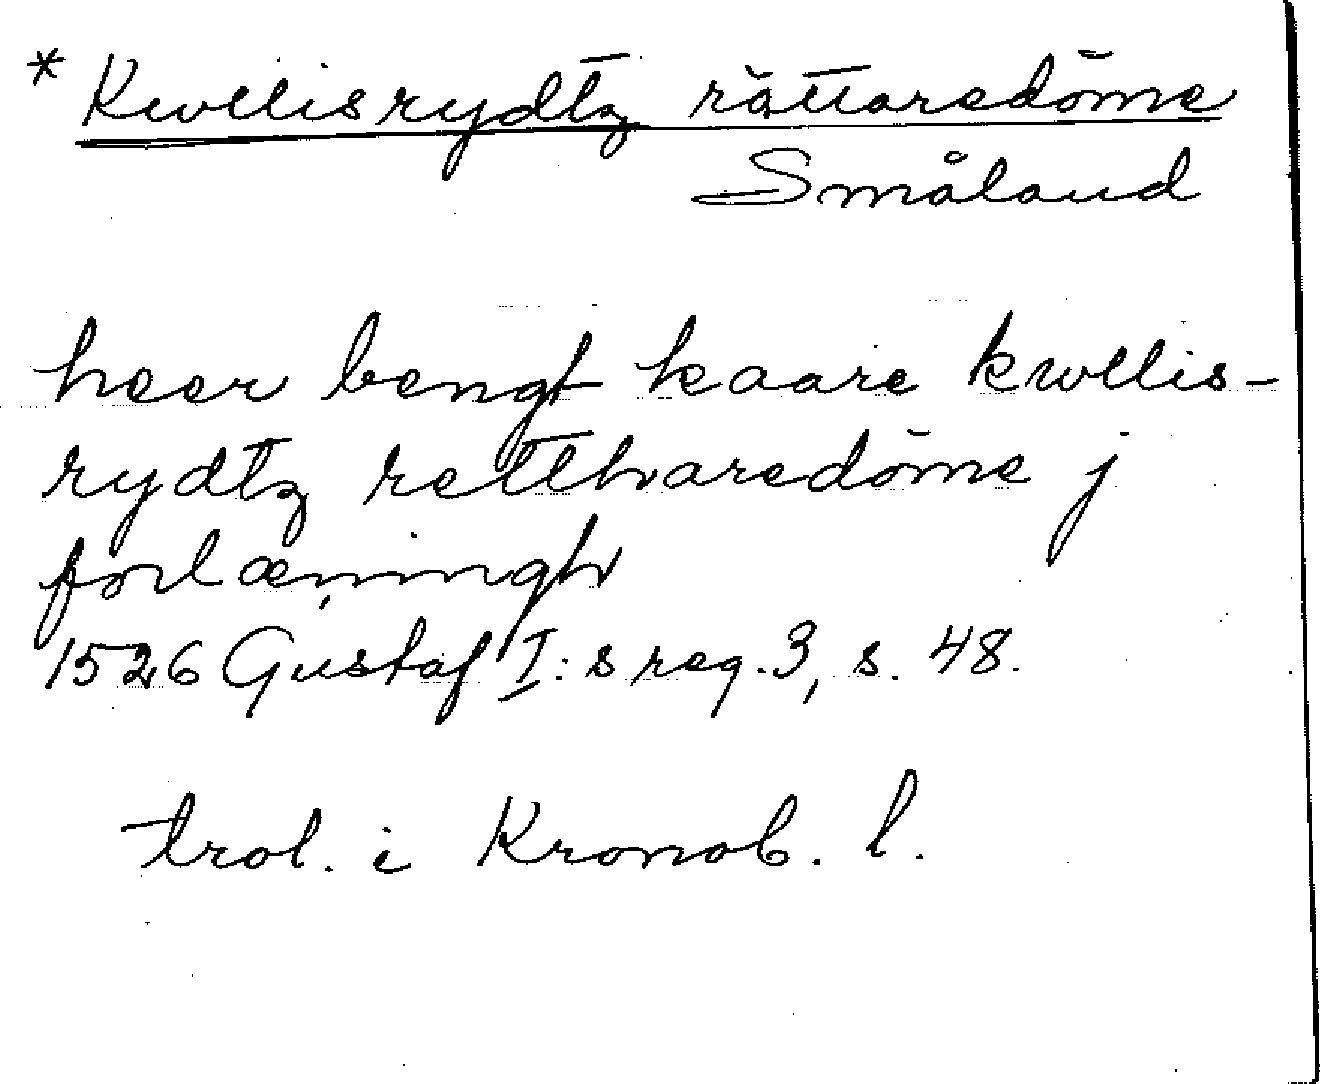 * Kwllisrydtz rättaredöme
Småland
heer bengt kaare kwllis-
rydtz retthvaredöme j
forlæningh
1526 Gustaf I:s reg. 3, s. 48.
trol. i Kronob. l.